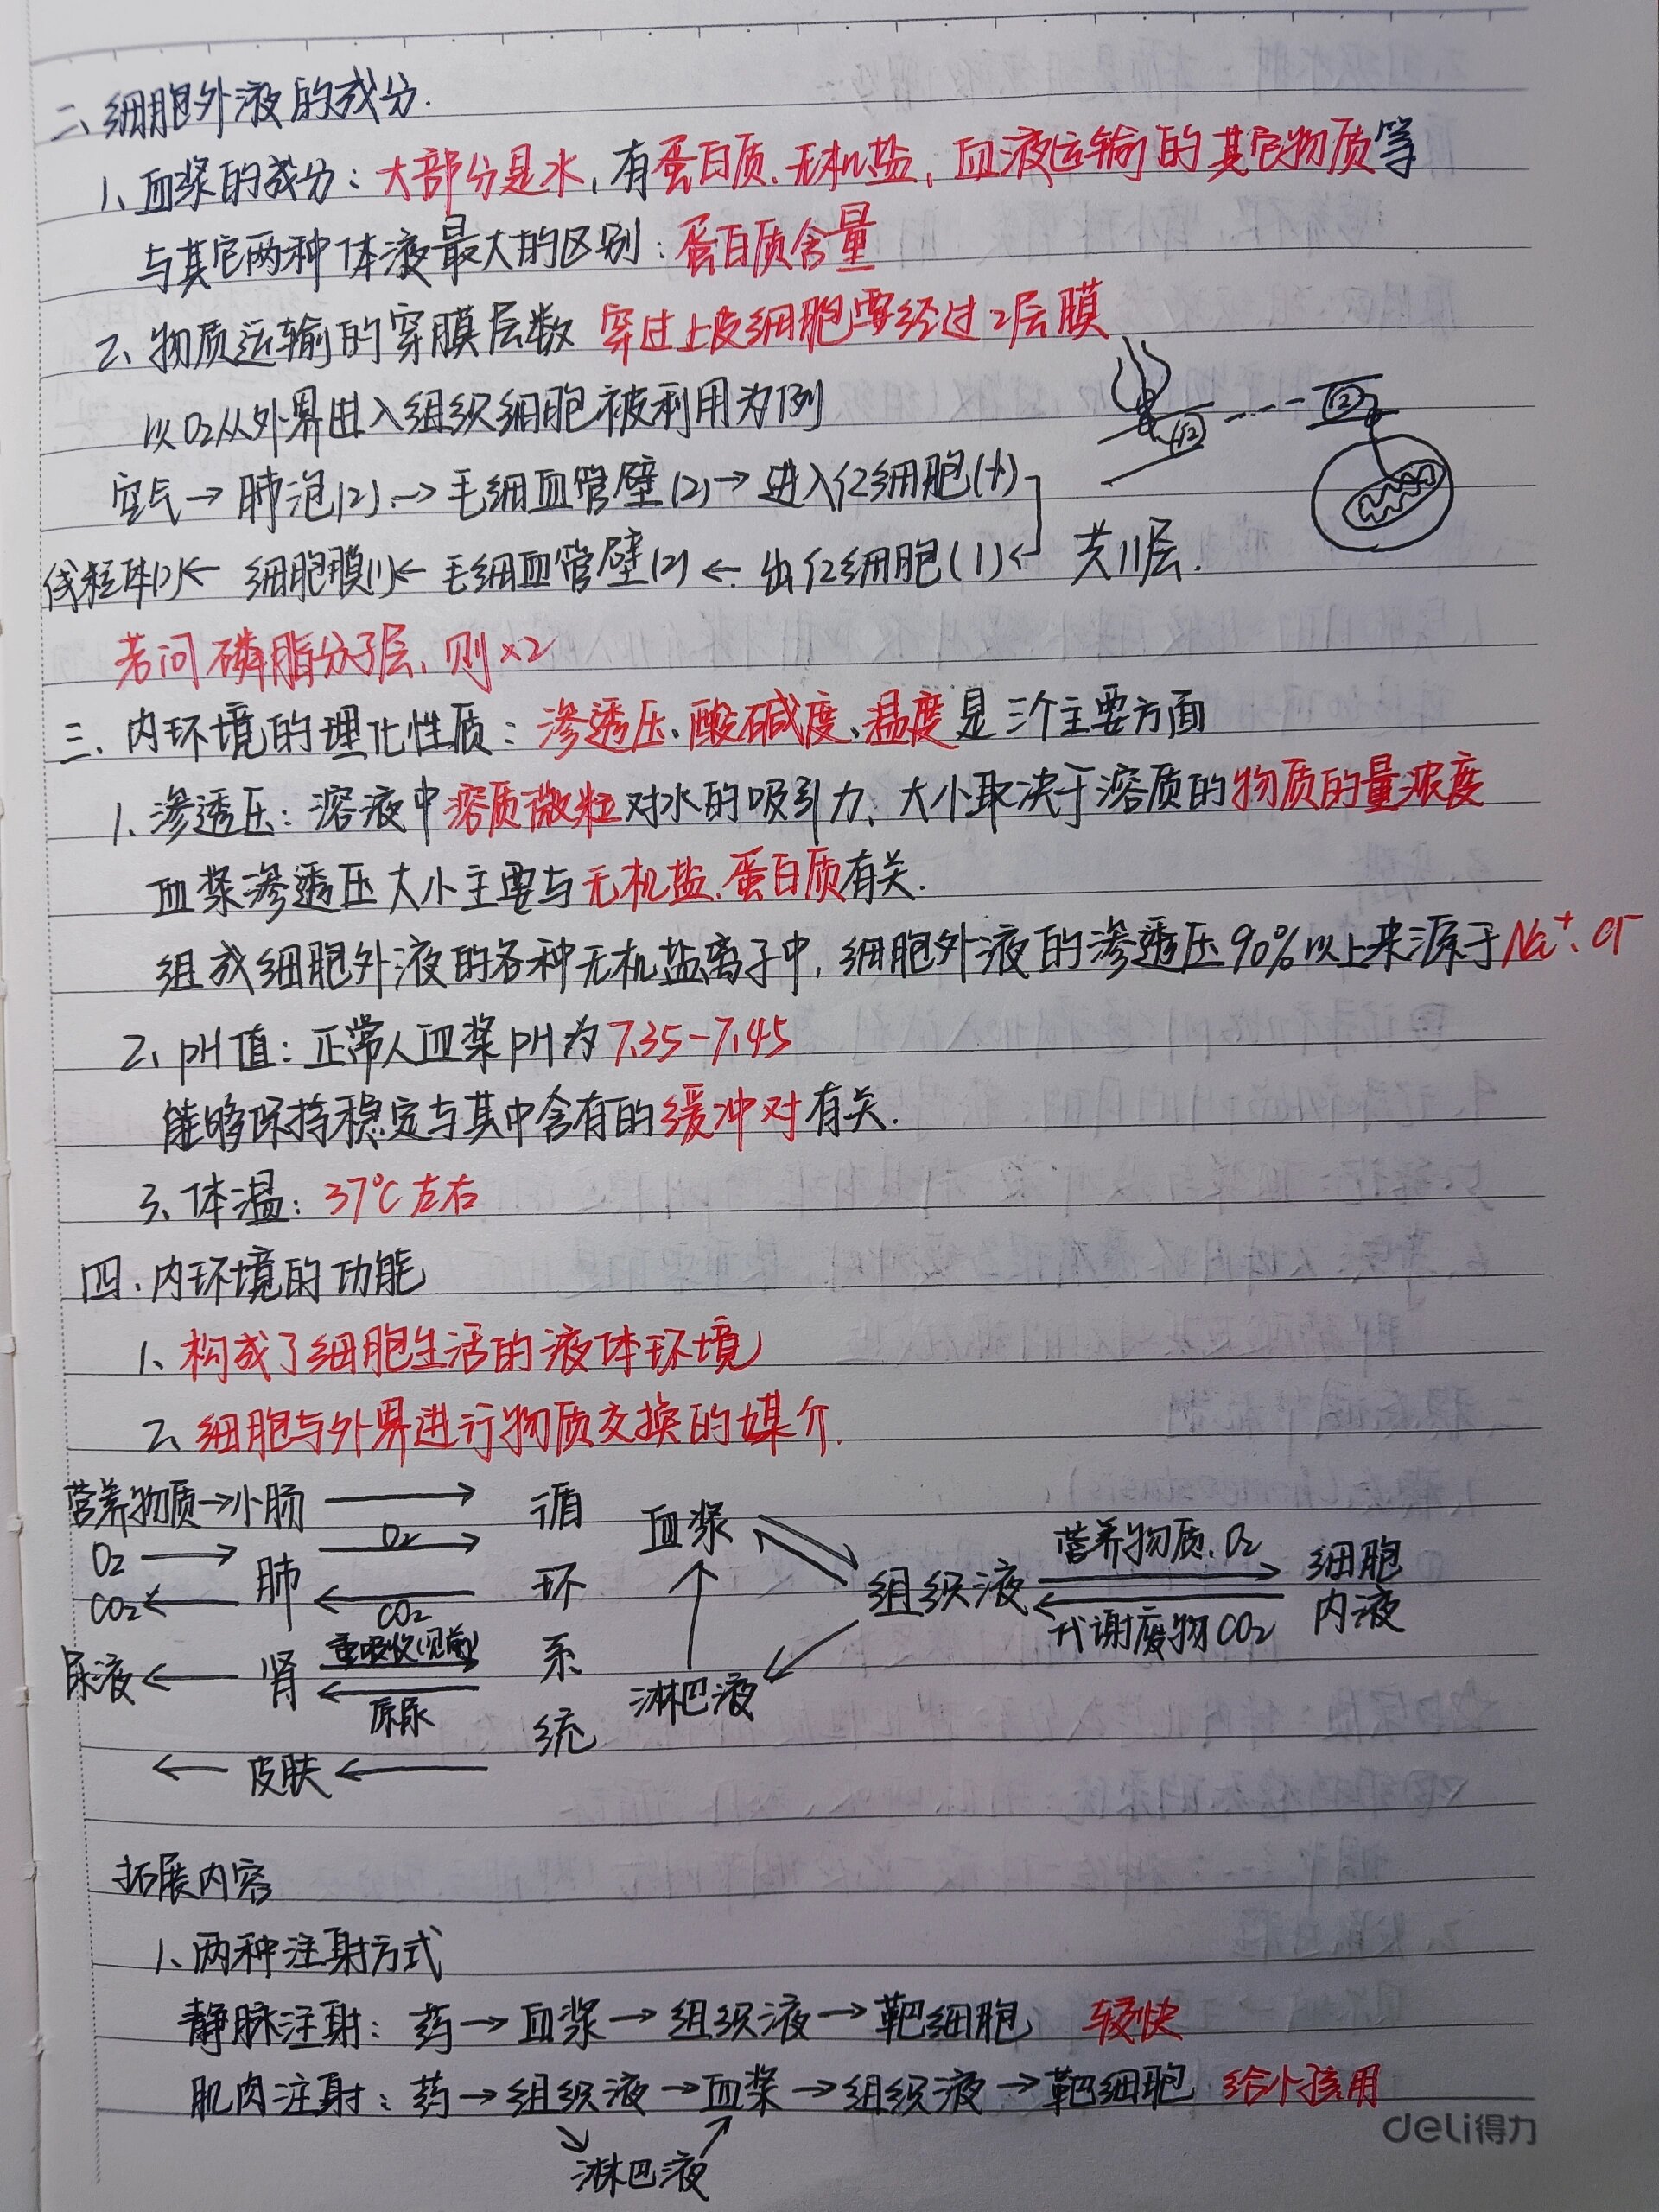 二、细胞外液的成分.
1、血浆的成分：大部分是水，有蛋白质、无机盐，血液运输的其它物质等
与其它两种体液最大的区别：蛋白质含量
2、物质运输的穿膜层数 穿过上皮细胞要经过2层膜
以O₂从外界进入组织细胞被利用为例
空气→肺泡(2)→毛细血管壁(2)→进入红细胞(1)
线粒体(2)←细胞膜(1)←毛细血管壁(2)←出红细胞(1) 共11层.
若问磷脂分子层，则×2
三、内环境的理化性质：渗透压、酸碱度、温度是三个主要方面
1、渗透压：溶液中溶质微粒对水的吸引力、大小取决于溶质的物质的量浓度
血浆渗透压大小主要与无机盐、蛋白质有关.
组成细胞外液的各种无机盐离子中，细胞外液的渗透压90%以上来源于Na⁺、Cl⁻
2、pH值：正常人血浆pH为7.35-7.45
能够保持稳定与其中含有的缓冲对有关.
3、体温：37℃左右
四、内环境的功能
1、构成了细胞生活的液体环境
2、细胞与外界进行物质交换的媒介.
营养物质→小肠
O₂
CO₂
肺
O₂
CO₂
尿液
肾
重吸收
原尿
皮肤
循环系统
血浆
组织液
淋巴液
营养物质、O₂
代谢废物CO₂
细胞内液
拓展内容
1、两种注射方式
静脉注射：药→血浆→组织液→靶细胞 较快
肌肉注射：药→组织液→血浆→组织液→靶细胞 给小孩用
淋巴液
deli得力